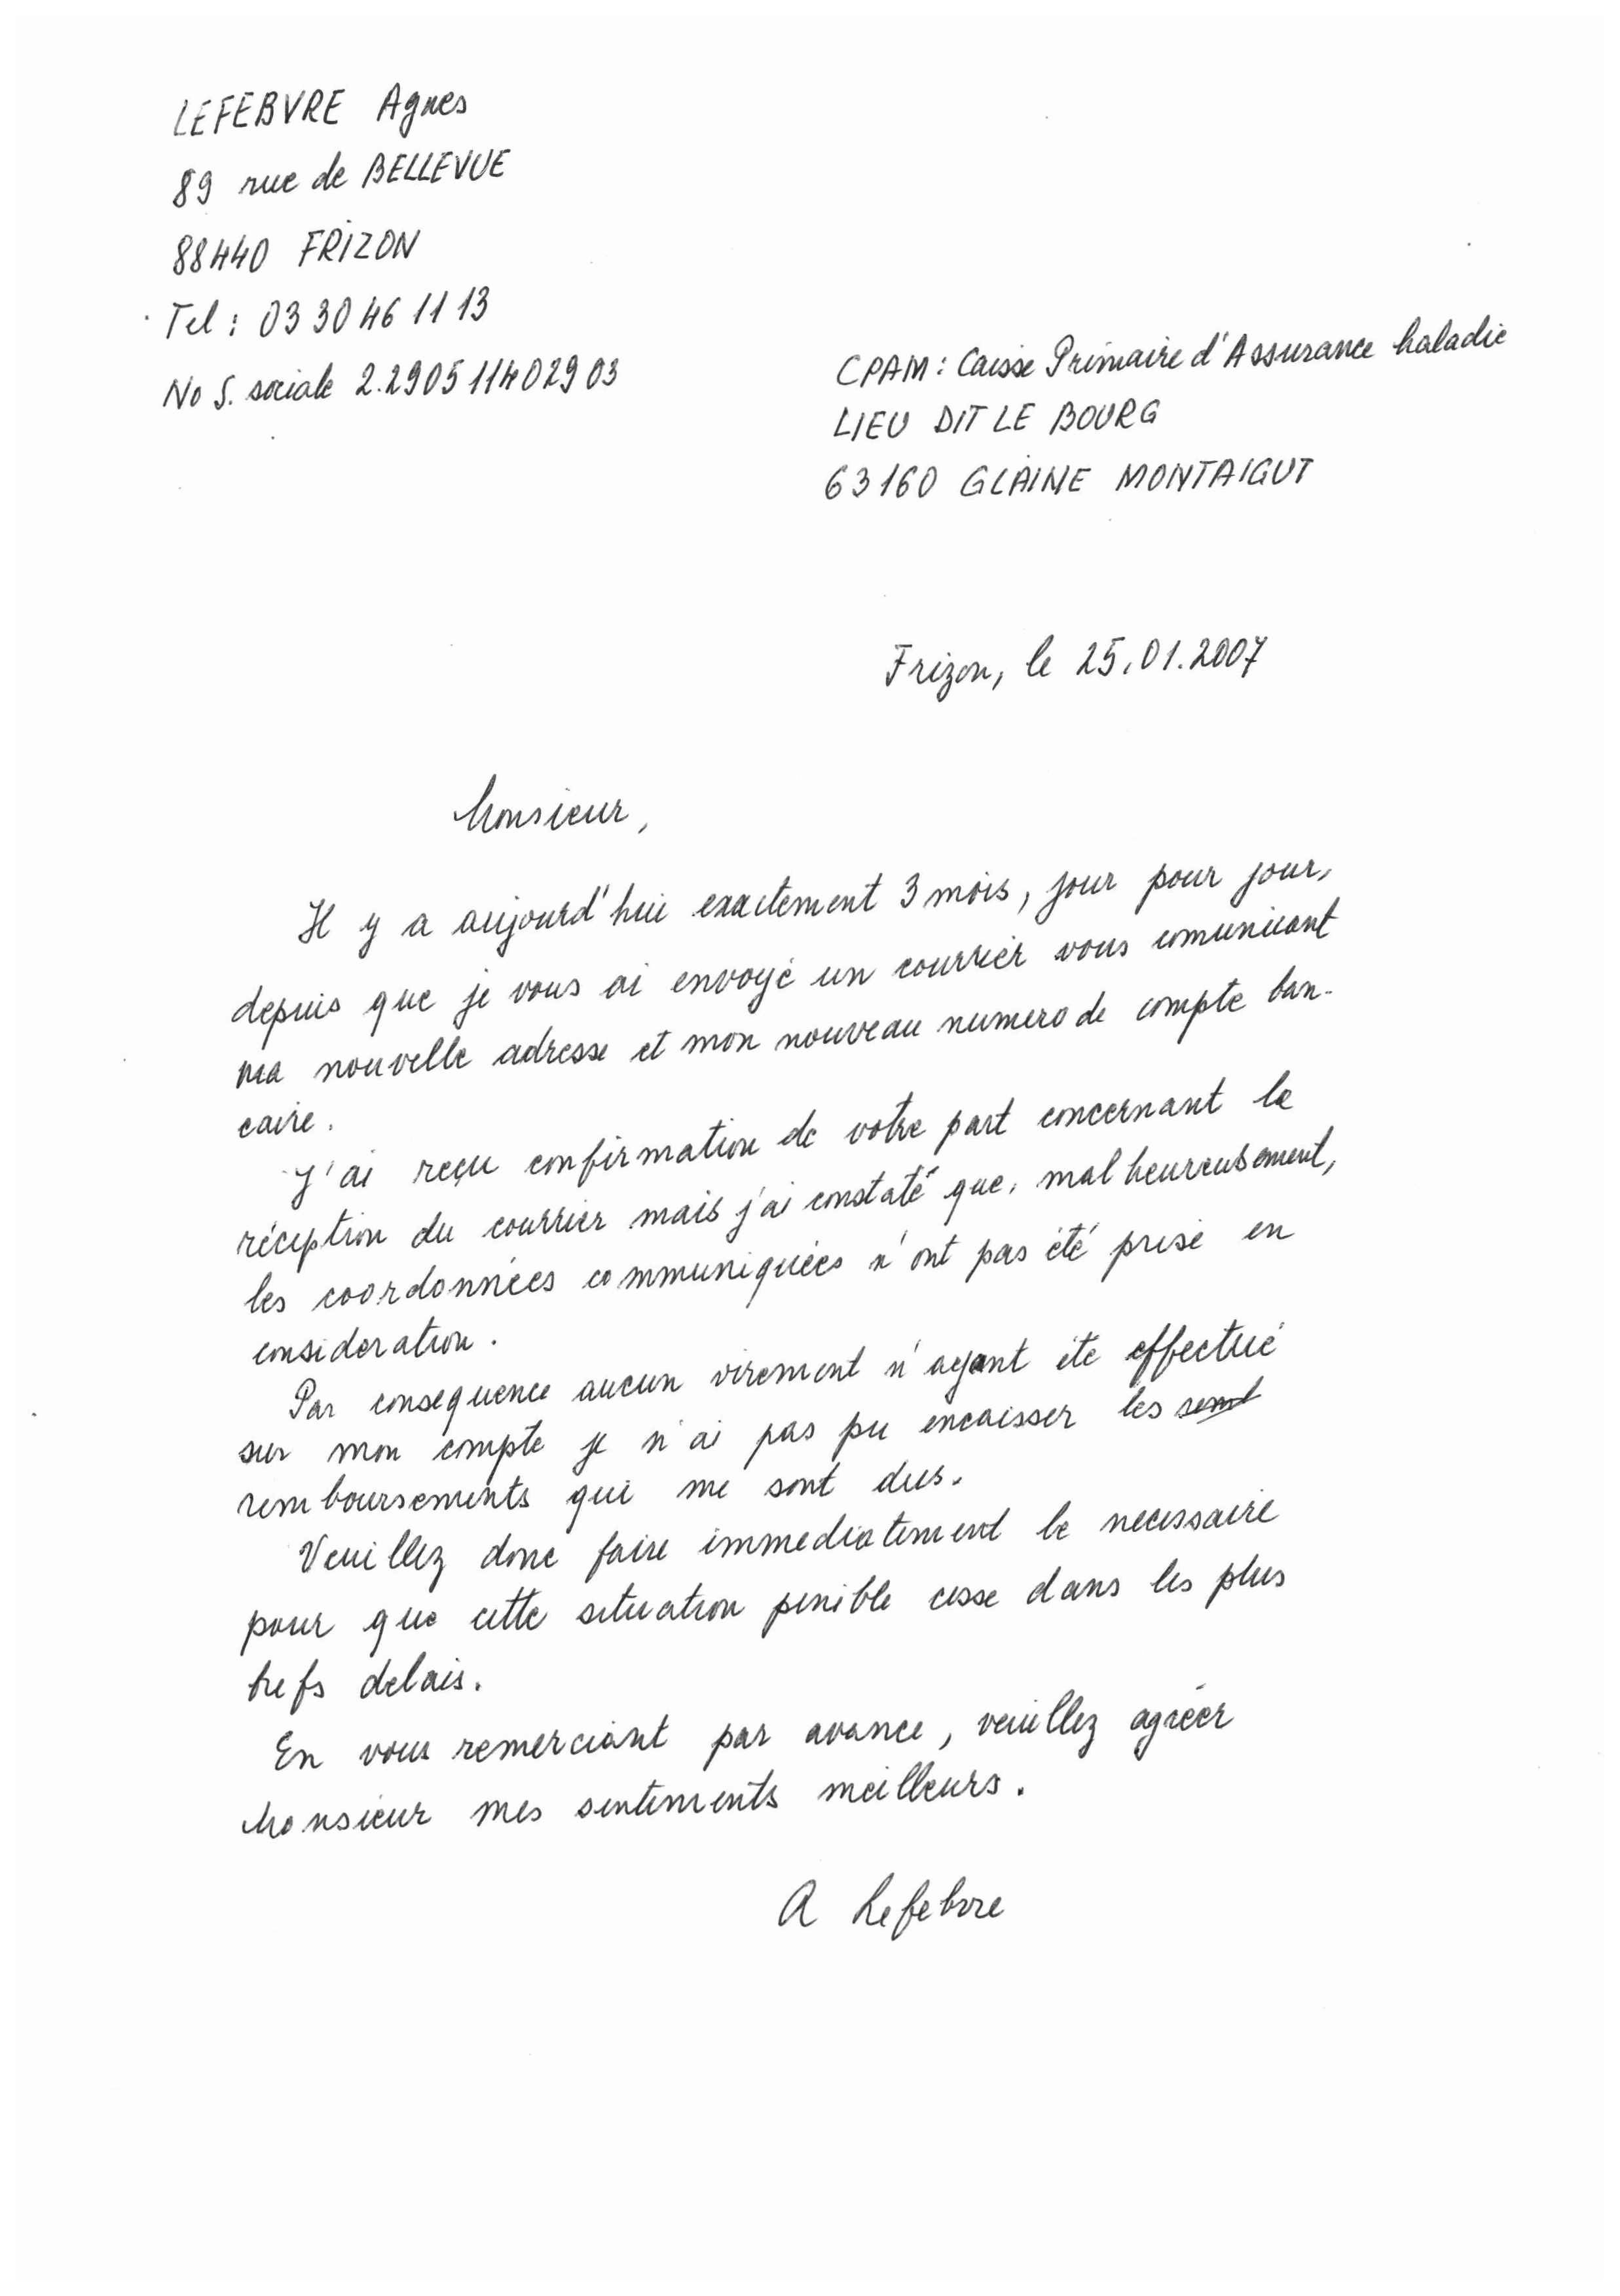 LEFEBVRE Agnes
89 rue de BELLEVUE
88440 FRIZON
Tel : 03 30 46 11 13
No S. sociale 2.290511402903
CPAM : Caisse Primaire d'Assurance Maladie
LIEU DIT LE BOURG
63160 GLAINE MONTAIGUT
Frizon, le 25.01.2007
Monsieur,
Il y a aujourd'hui exactement 3 mois, jour pour jour,
depuis que je vous ai envoyé un courrier vous comunicant
ma nouvelle adresse et mon nouveau numero de compte ban-
caire.
J'ai reçu confirmation de votre part concernant la
réception du courrier mais j'ai constaté que, malheureusement,
les coordonnées communiquées n'ont pas été prise en
consideration.
Par consequence aucun virement n'ayant été effectué
sur mon compte je n'ai pas pu encaisser les
remboursements qui me sont dus.
Veuillez donc faire immediatement le necessaire
pour que cette situation penible cesse dans les plus
brefs delais.
En vous remerciant par avance, veuillez agréer
Monsieur mes sentiments meilleurs.
A Lefebvre